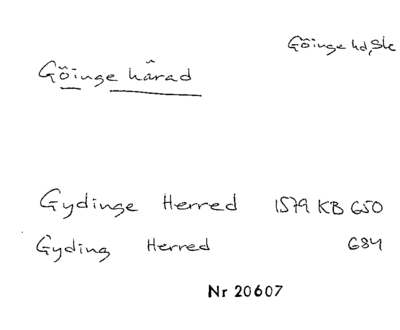 Göinge hd, Sk
Göinge härad
Gydinge Herred 1579 KB 650
Gyding Herred 684
Nr 20607